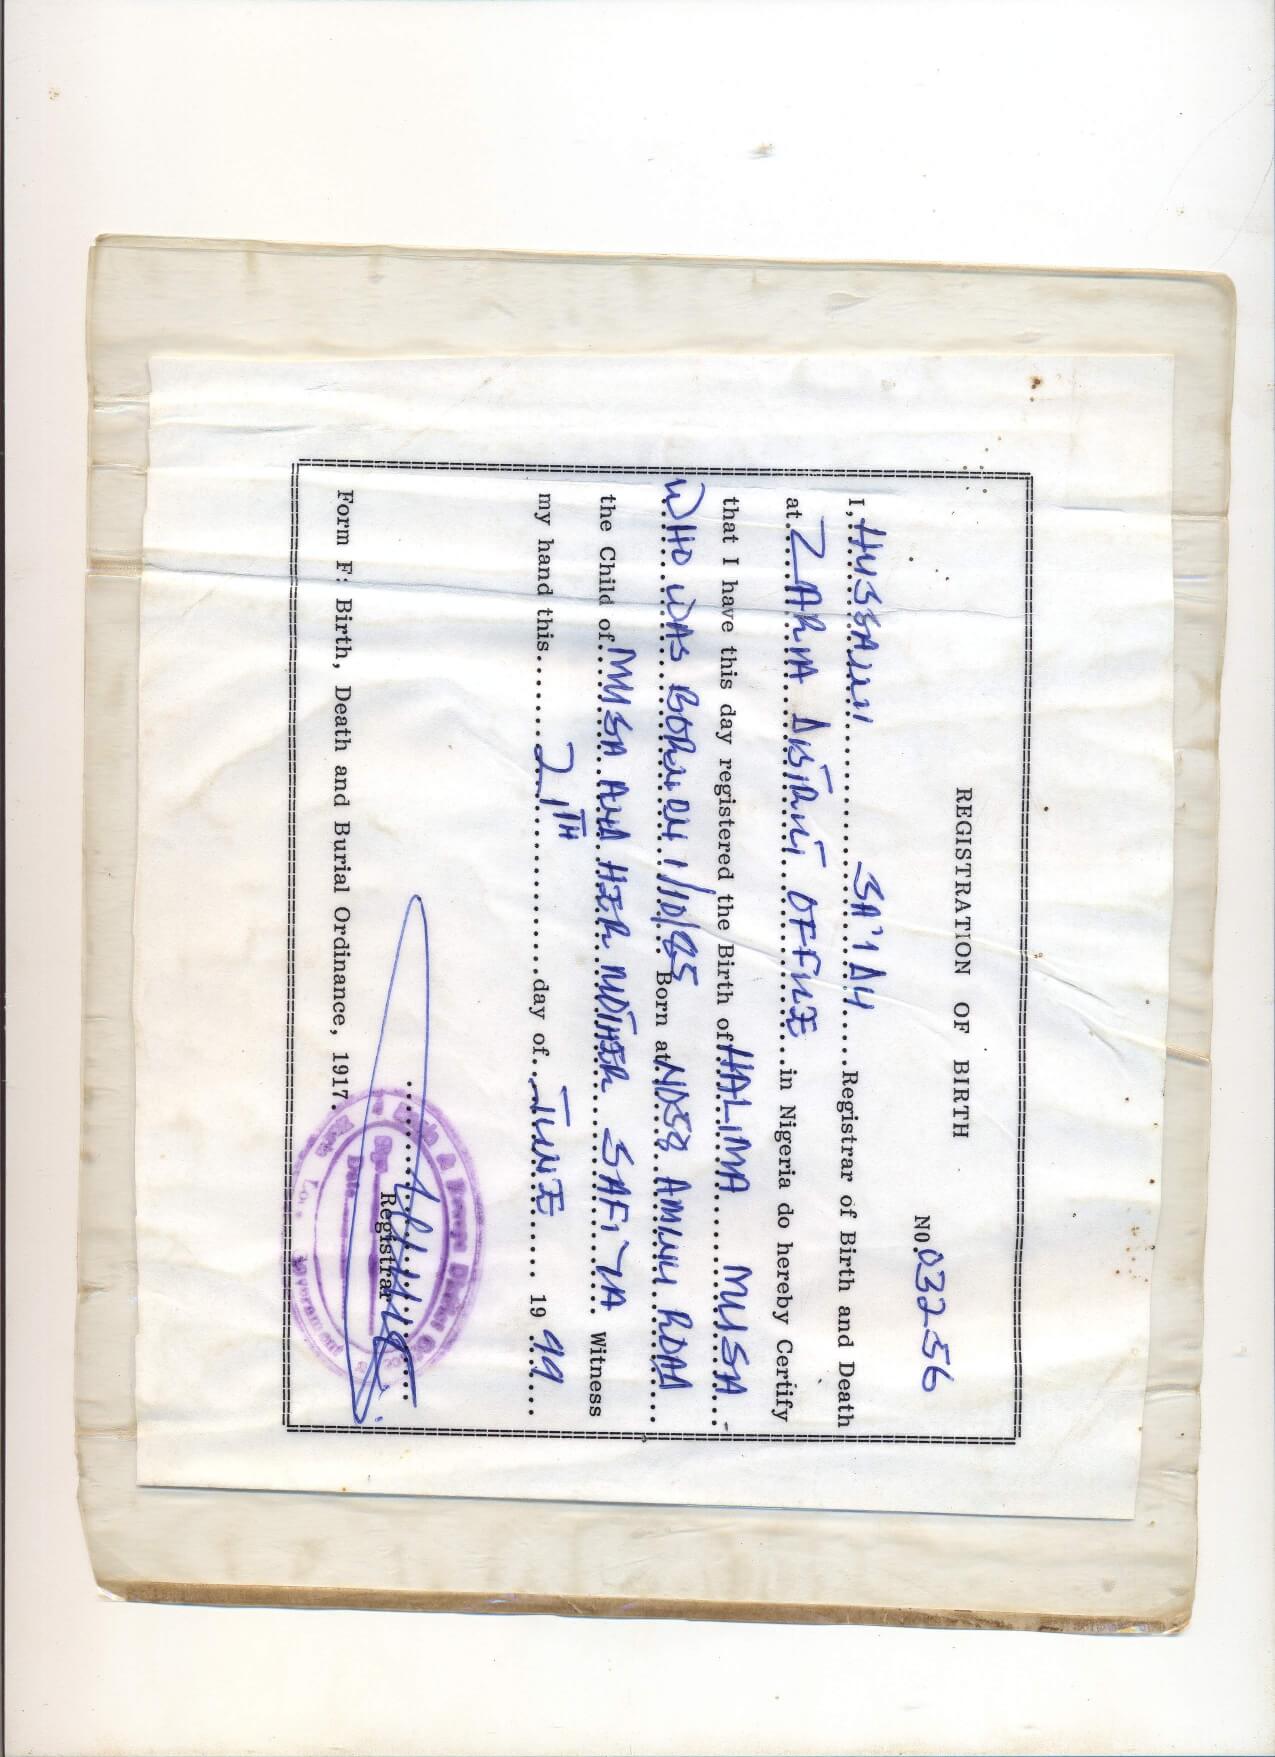 REGISTRATION OF BIRTH
No. 032256
I, HUSSAINI SA'IDU Registrar of Birth and Death
at ZARIA DISTRICT OFFICE in Nigeria do hereby Certify
that I have this day registered the Birth of HALIMA MUSA
WHO WAS BORN ON 1/10/85 Born at NO58 AMINU ROAD
the Child of MUSA AND HER MOTHER SAFIYA Witness
my hand this 21TH day of JUNE 1999
Registrar
Form F: Birth, Death and Burial Ordinance, 1917.